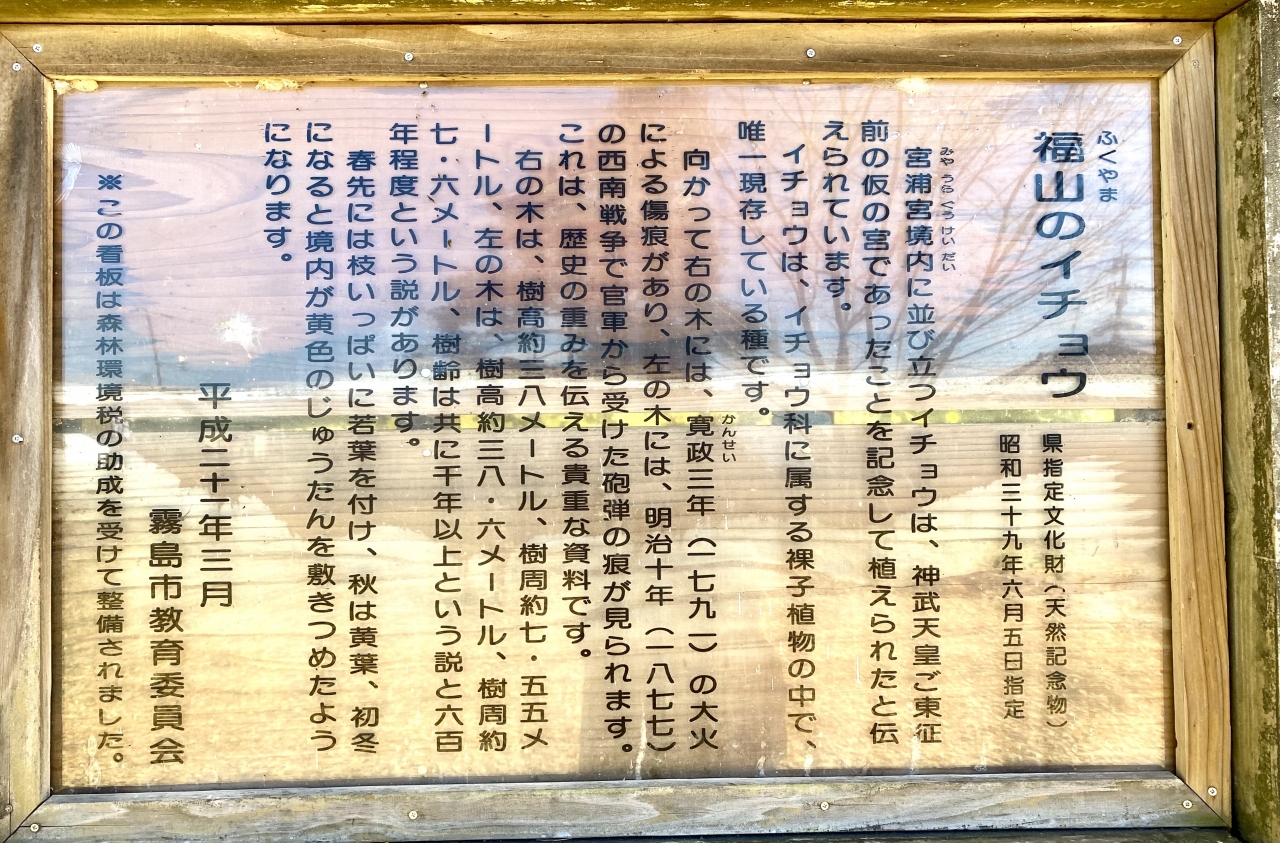 ふくやま
福山のイチョウ
県指定文化財（天然記念物）
昭和三十九年六月五日指定
みやうらぐうけいだい
宮浦宮境内に並び立つイチョウは、神武天皇ご東征
前の仮の宮であったことを記念して植えられたと伝
えられています。
イチョウは、イチョウ科に属する裸子植物の中で、
唯一現存している種です。
かんせい
向かって右の木には、寛政三年（一七九一）の大火
による傷痕があり、左の木には、明治十年（一八七七）
の西南戦争で官軍から受けた砲弾の痕が見られます。
これは、歴史の重みを伝える貴重な資料です。
右の木は、樹高約三八メートル、樹周約七・五五メ
ートル、左の木は、樹高約三八・六メートル、樹周約
七・六メートル、樹齢は共に千年以上という説と六百
年程度という説があります。
春先には枝いっぱいに若葉を付け、秋は黄葉、初冬
になると境内が黄色のじゅうたんを敷きつめたよう
になります。
平成二十一年三月
霧島市教育委員会
※この看板は森林環境税の助成を受けて整備されました。